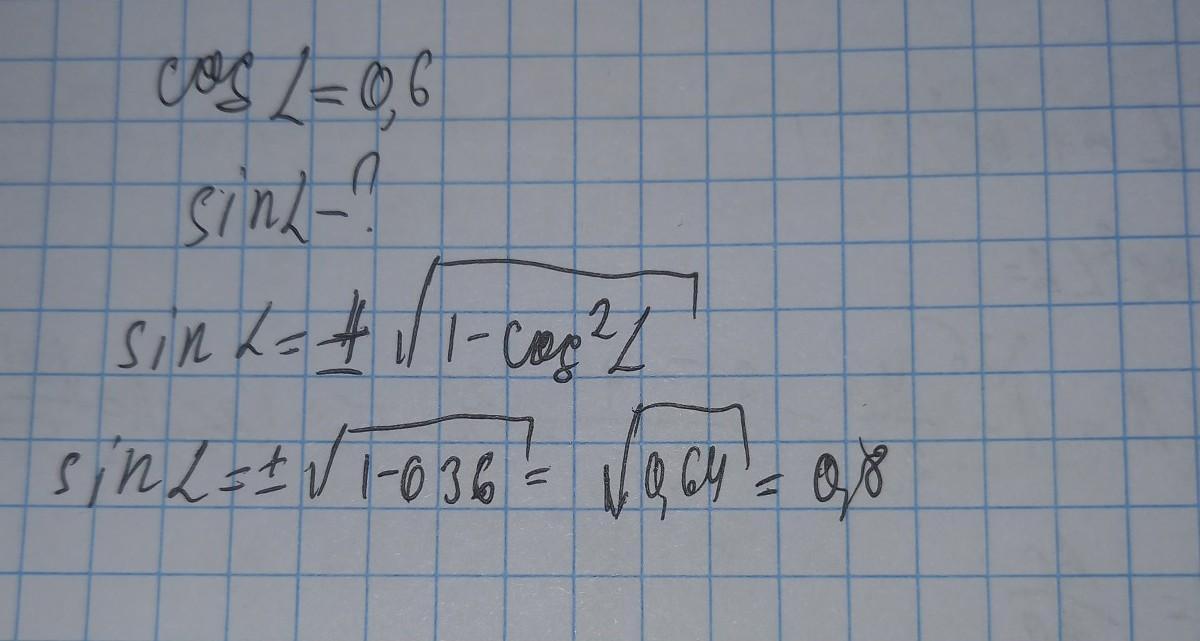 cos L = 0,6
sin L - ?
sin L = ± √1 - cos² L
sin L = ± √1 - 0 36 = √0,64 = 0,8